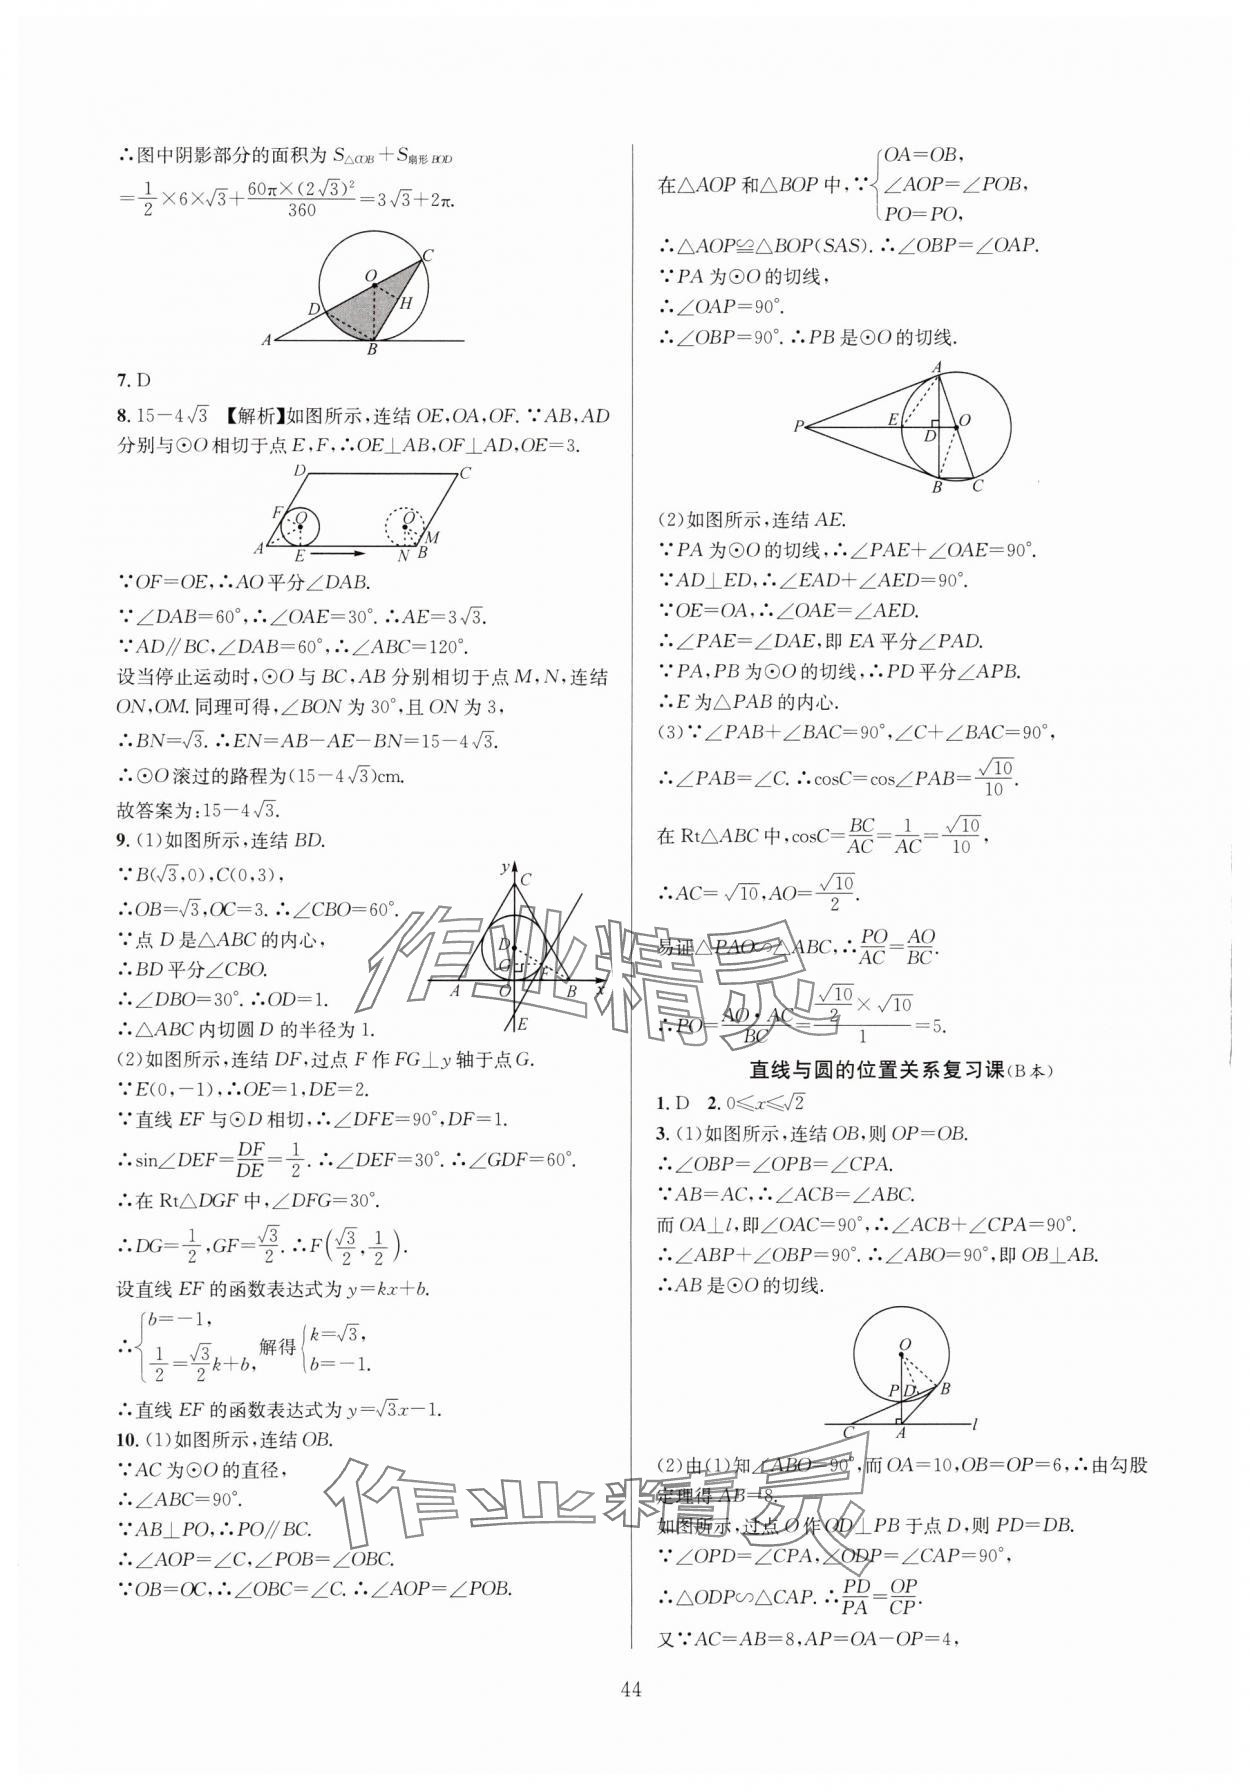 ∴图中阴影部分的面积为 S△COB＋S扇形BOD
＝1/2×6×√3＋60π×(2√3)²/360＝3√3＋2π.
C
O
D
H
A
B
7. D
8. 15－4√3 【解析】如图所示,连结 OE,OA,OF. ∵AB,AD
分别与⊙O 相切于点 E,F,∴OE⊥AB,OF⊥AD,OE＝3.
D C
F O O' M
A E N B
∵OF＝OE,∴AO 平分∠DAB.
∵∠DAB＝60°,∴∠OAE＝30°. ∴AE＝3√3.
∵AD∥BC,∠DAB＝60°,∴∠ABC＝120°.
设当停止运动时,⊙O 与 BC,AB 分别相切于点 M,N,连结
ON,OM. 同理可得,∠BON 为 30°,且 ON 为 3,
∴BN＝√3. ∴EN＝AB－AE－BN＝15－4√3.
∴⊙O 滚过的路程为(15－4√3)cm.
故答案为:15－4√3.
9. (1)如图所示,连结 BD.
∵B(√3,0),C(0,3),
∴OB＝√3,OC＝3. ∴∠CBO＝60°.
∵点 D 是△ABC 的内心,
∴BD 平分∠CBO.
∴∠DBO＝30°. ∴OD＝1.
∴△ABC 内切圆 D 的半径为 1.
y
C
D
G F
A O B x
E
(2)如图所示,连结 DF,过点 F 作 FG⊥y 轴于点 G.
∵E(0,－1),∴OE＝1,DE＝2.
∵直线 EF 与⊙D 相切,∴∠DFE＝90°,DF＝1.
∴sin∠DEF＝DF/DE＝1/2. ∴∠DEF＝30°. ∴∠GDF＝60°.
∴在 Rt△DGF 中,∠DFG＝30°.
∴DG＝1/2,GF＝√3/2. ∴F(√3/2,1/2).
设直线 EF 的函数表达式为 y＝kx＋b.
∴{b＝－1, 1/2＝√3/2k＋b, 解得{k＝√3, b＝－1.
∴直线 EF 的函数表达式为 y＝√3x－1.
10. (1)如图所示,连结 OB.
∵AC 为⊙O 的直径,
∴∠ABC＝90°.
∵AB⊥PO,∴PO∥BC.
∴∠AOP＝∠C,∠POB＝∠OBC.
∵OB＝OC,∴∠OBC＝∠C. ∴∠AOP＝∠POB.
在△AOP 和△BOP 中,∵{OA＝OB, ∠AOP＝∠POB, PO＝PO,
∴△AOP≌△BOP(SAS). ∴∠OBP＝∠OAP.
∵PA 为⊙O 的切线,
∴∠OAP＝90°.
∴∠OBP＝90°. ∴PB 是⊙O 的切线.
A
P E D O
B C
(2)如图所示,连结 AE.
∵PA 为⊙O 的切线,∴∠PAE＋∠OAE＝90°.
∵AD⊥ED,∴∠EAD＋∠AED＝90°.
∵OE＝OA,∴∠OAE＝∠AED.
∴∠PAE＝∠DAE,即 EA 平分∠PAD.
∵PA,PB 为⊙O 的切线,∴PD 平分∠APB.
∴E 为△PAB 的内心.
(3)∵∠PAB＋∠BAC＝90°,∠C＋∠BAC＝90°,
∴∠PAB＝∠C. ∴cosC＝cos∠PAB＝√10/10.
在 Rt△ABC 中,cosC＝BC/AC＝1/AC＝√10/10,
∴AC＝√10,AO＝√10/2.
易证△PAO∽△ABC,∴PO/AC＝AO/BC.
∴PO＝AO·AC/BC＝(√10/2×√10)/1＝5.
直线与圆的位置关系复习课(B本)
1. D 2. 0≤x≤√2
3. (1)如图所示,连结 OB,则 OP＝OB.
∴∠OBP＝∠OPB＝∠CPA.
∵AB＝AC,∴∠ACB＝∠ABC.
而 OA⊥l,即∠OAC＝90°,∴∠ACB＋∠CPA＝90°.
∴∠ABP＋∠OBP＝90°. ∴∠ABO＝90°,即 OB⊥AB.
∴AB 是⊙O 的切线.
O
P D B
C A l
(2)由(1)知∠ABO＝90°,而 OA＝10,OB＝OP＝6,∴由勾股
定理得 AB＝8.
如图所示,过点 O 作 OD⊥PB 于点 D,则 PD＝DB.
∵∠OPD＝∠CPA,∠ODP＝∠CAP＝90°,
∴△ODP∽△CAP. ∴PD/PA＝OP/CP.
又∵AC＝AB＝8,AP＝OA－OP＝4,
作业精灵
作业精灵
44